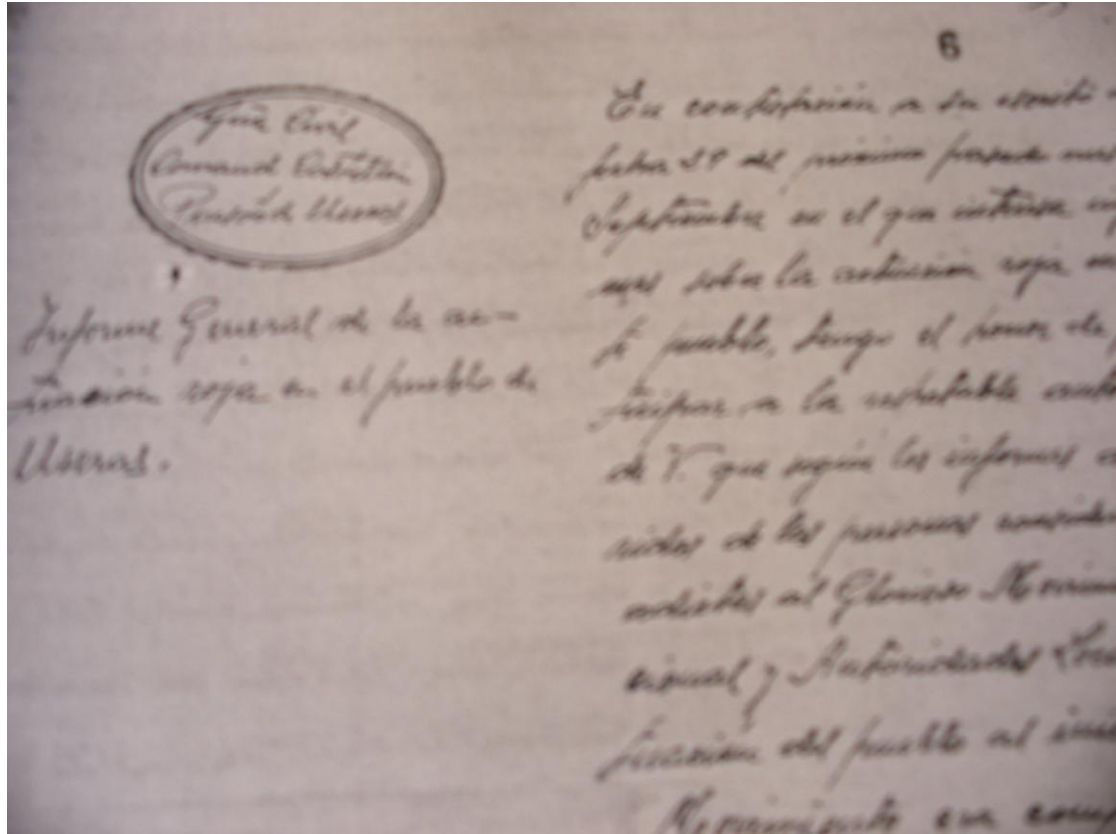 6
Guª Civil
Comanᵈ Castellón
Puesto de Useras
Informe General de la ac-
tuación roja en el pueblo de
Useras.
En contestación a su escrito
fecha del próximo pasado mes
Septiembre en el que interesa
mes sobre la actuación roja en
te pueblo, tengo el honor de
ticipar a la respetable auto
de V. que según los informes
ridos de las personas conside
adictas al Glorioso Movim
cional y Autoridades Loca
tuación del pueblo al inic
Movimiento era comp